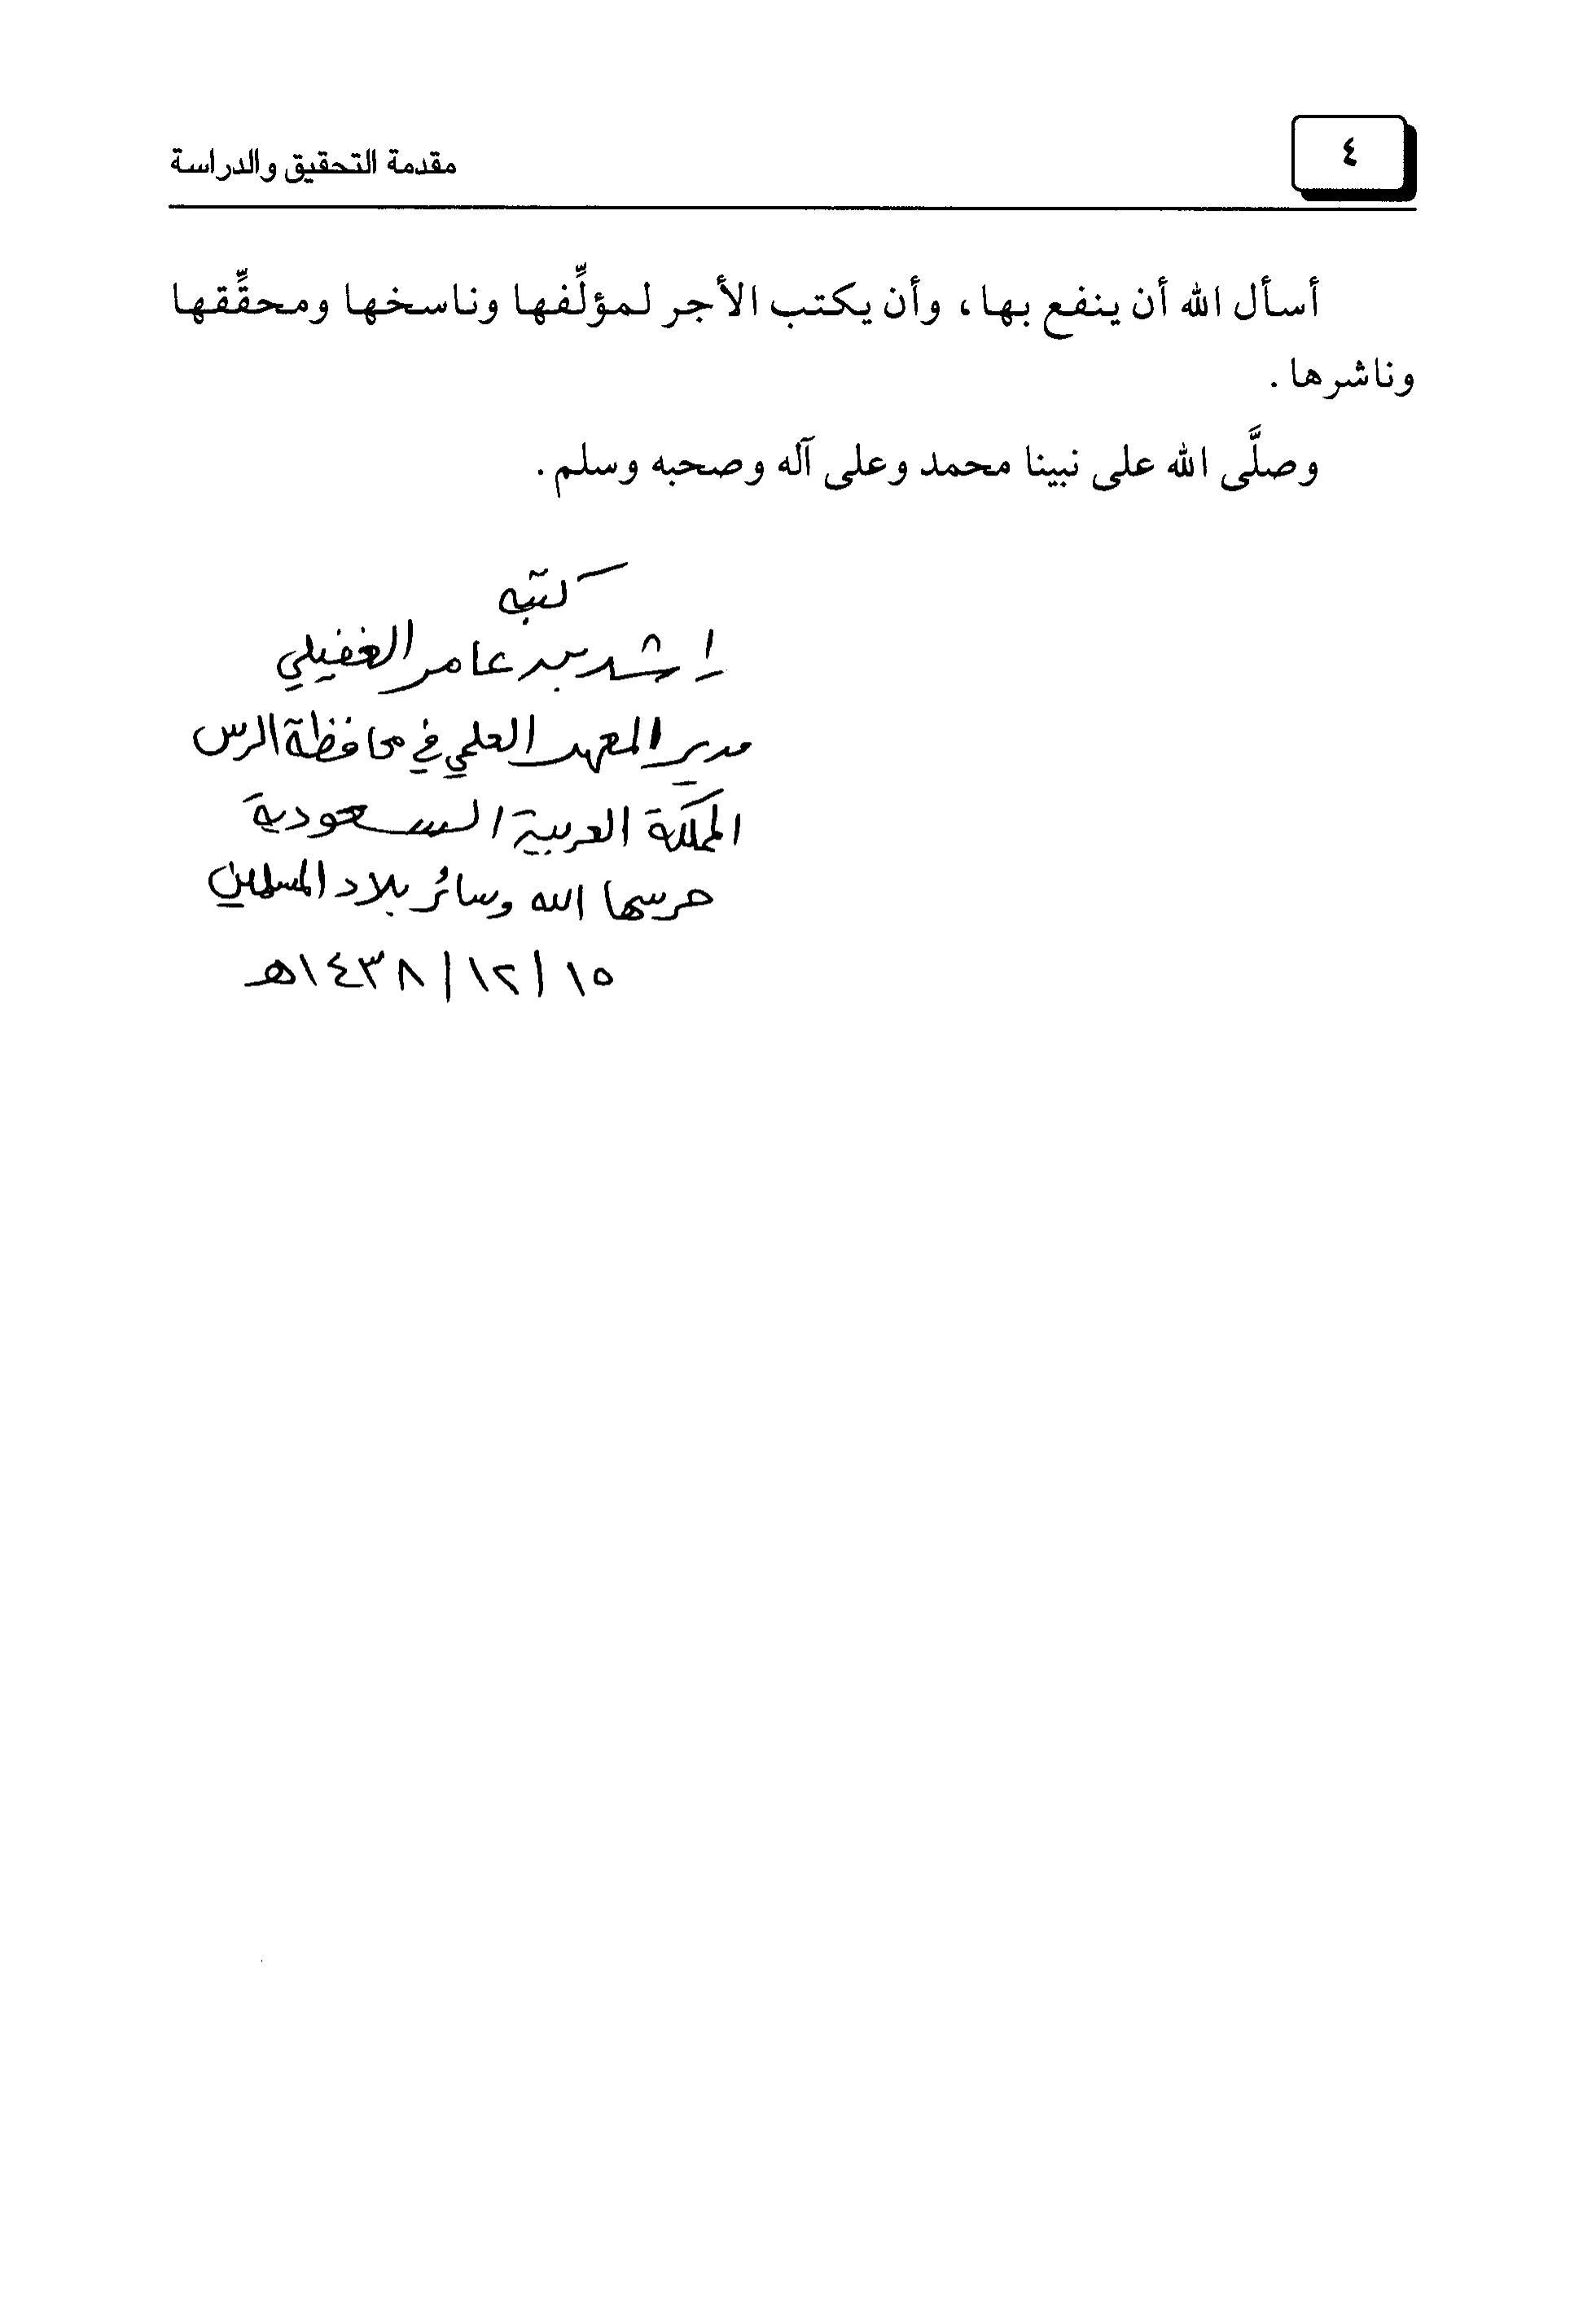 ٤
مقدمة التحقيق والدراسة
أسأل الله أن ينفع بها، وأن يكتب الأجر لمؤلِّفها وناسخها ومحقِّقها
وناشرها.
وصلَّى الله على نبينا محمد وعلى آله وصحبه وسلم.
كتبه
راشد بن عامر الغفيلي
مدير المعهد العلمي في محافظة الرس
المملكة العربية السعودية
حرسها الله وسائر بلاد المسلمين
١٥/١٢/١٤٣٨هـ